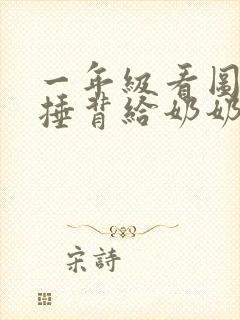 一年級看圖
捶背給奶奶
宋詩